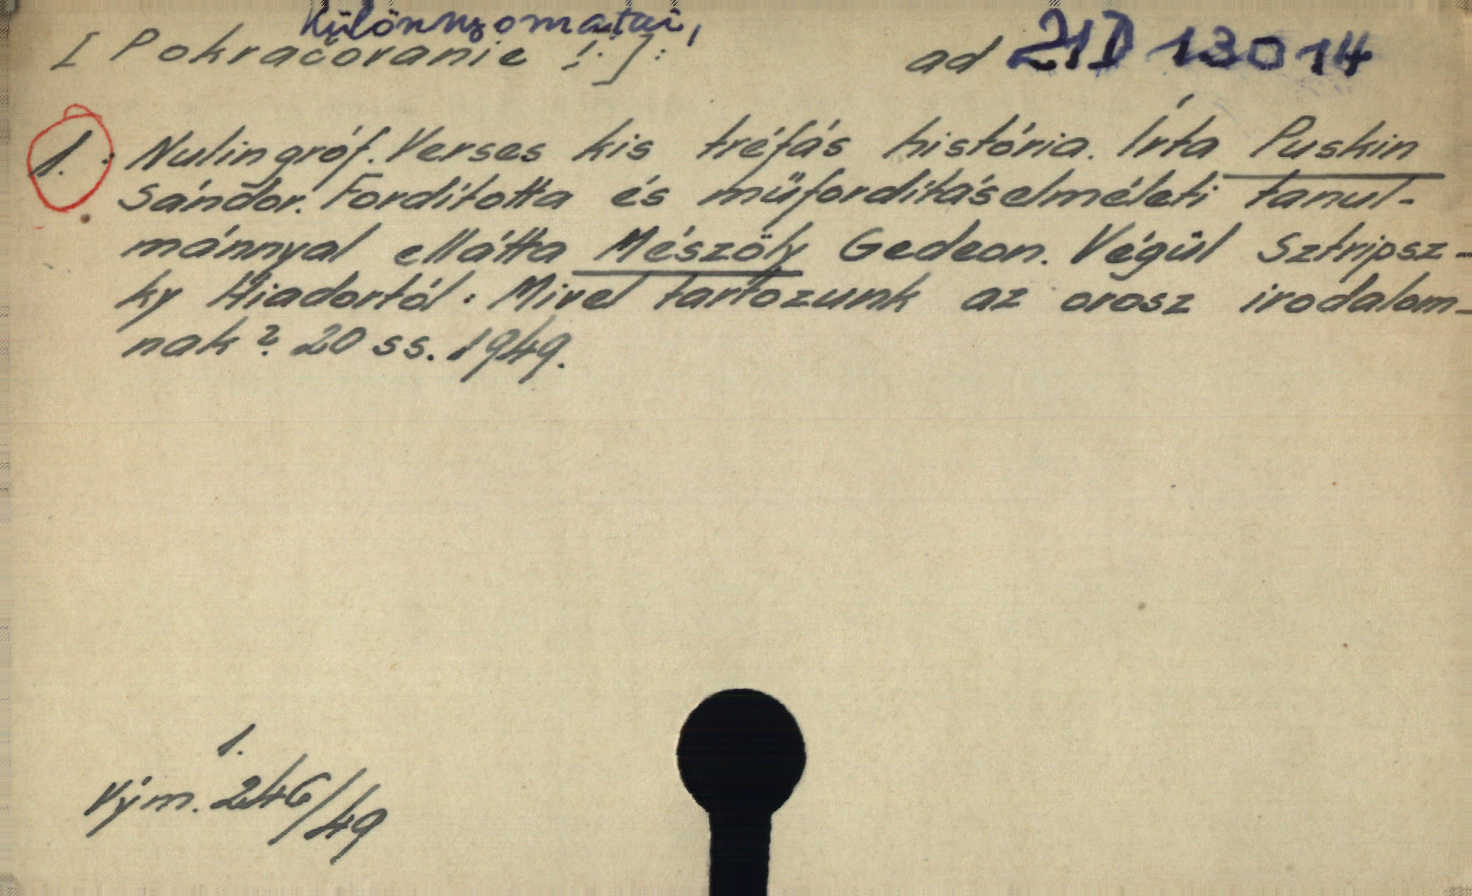 Különnyomatai,
[Pokračovanie 1.]:
ad 21D 13014
1. Nulin gróf. Verses kis tréfás história. Írta Puskin
Sándor. Fordította és műfordításelméleti tanul-
mánnyal ellátta Mészöly Gedeon. Végül Sztripsz-
ky Hiadortól: Mivel tartozunk az orosz irodalom-
nak? 20 ss. 1949.
1.
Vým. 246/49